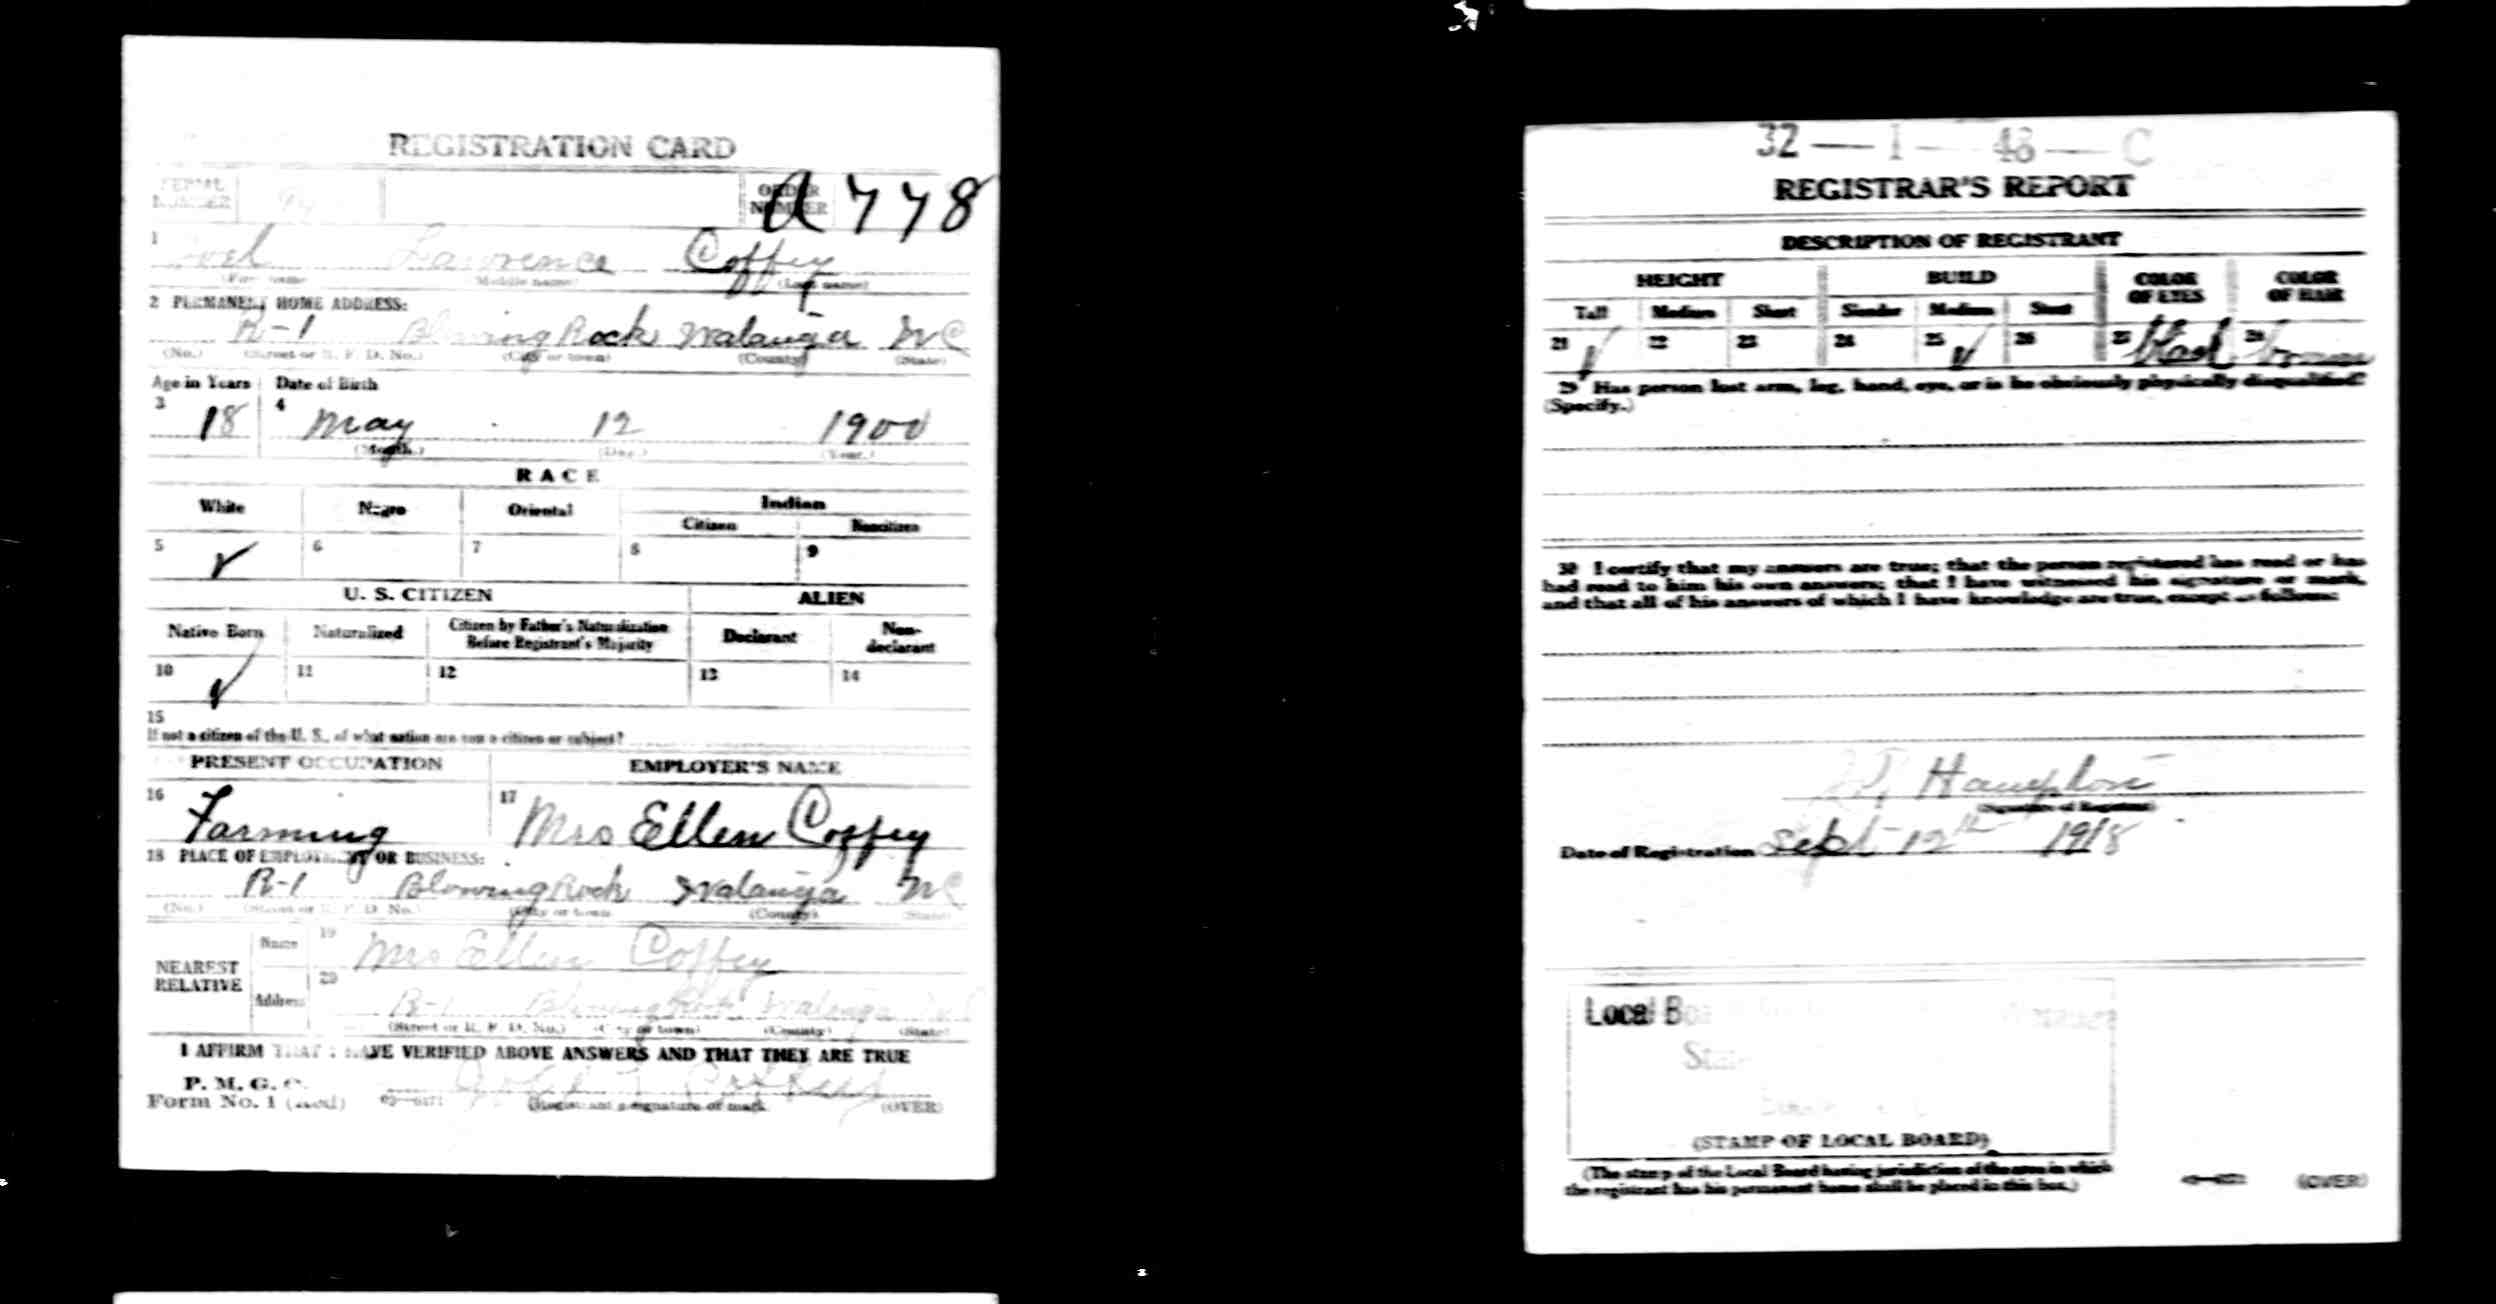 REGISTRATION CARD
SERIAL NUMBER
ORDER NUMBER A 778
1 Joel Lawrence Coffey
(First name) (Middle name) (Last name)
2 PERMANENT HOME ADDRESS:
R-1 Blowing Rock Watauga NC
(No.) (Street or R. F. D. No.) (City or town) (County) (State)
Age in Years Date of Birth
3 18 4 May 12 1900
(Month.) (Day.) (Year.)
RACE
White Negro Oriental Indian
Citizen Noncitizen
5 ✓ 6 7 8 9
U. S. CITIZEN ALIEN
Native Born Naturalized Citizen by Father's Naturalization Before Registrant's Majority Declarant Non-declarant
10 ✓ 11 12 13 14
15
If not a citizen of the U. S., of what nation are you a citizen or subject?
PRESENT OCCUPATION EMPLOYER'S NAME
16 Farming 17 Mrs Ellen Coffey
18 PLACE OF EMPLOYMENT OR BUSINESS:
R-1 Blowing Rock Watauga NC
(No.) (Street or R. F. D. No.) (City or town) (County) (State)
NEAREST RELATIVE
Name 19 Mrs Ellen Coffey
Address 20 R-1 Blowing Rock Watauga NC
(Street or R. F. D. No.) (City or town) (County) (State)
I AFFIRM THAT I HAVE VERIFIED ABOVE ANSWERS AND THAT THEY ARE TRUE
P. M. G. O.
Form No. 1 (Red) Joel L Coffey
(Registrant's signature or mark) (OVER)
32 — 1 — 48 — C
REGISTRAR'S REPORT
DESCRIPTION OF REGISTRANT
HEIGHT BUILD COLOR OF EYES COLOR OF HAIR
Tall Medium Short Slender Medium Stout
21 ✓ 22 23 24 25 ✓ 26 27 black 28 brown
29 Has person lost arm, leg, hand, eye, or is he obviously physically disqualified?
(Specify.)
30 I certify that my answers are true; that the person registered has read or has
had read to him his own answers; that I have witnessed his signature or mark,
and that all of his answers of which I have knowledge are true, except as follows:
Hampton
(Signature of Registrar)
Date of Registration Sept 12th 1918
Local Board
(STAMP OF LOCAL BOARD)
(The stamp of the Local Board having jurisdiction of the area in which
the registrant has his permanent home shall be placed in this box.)
(OVER)